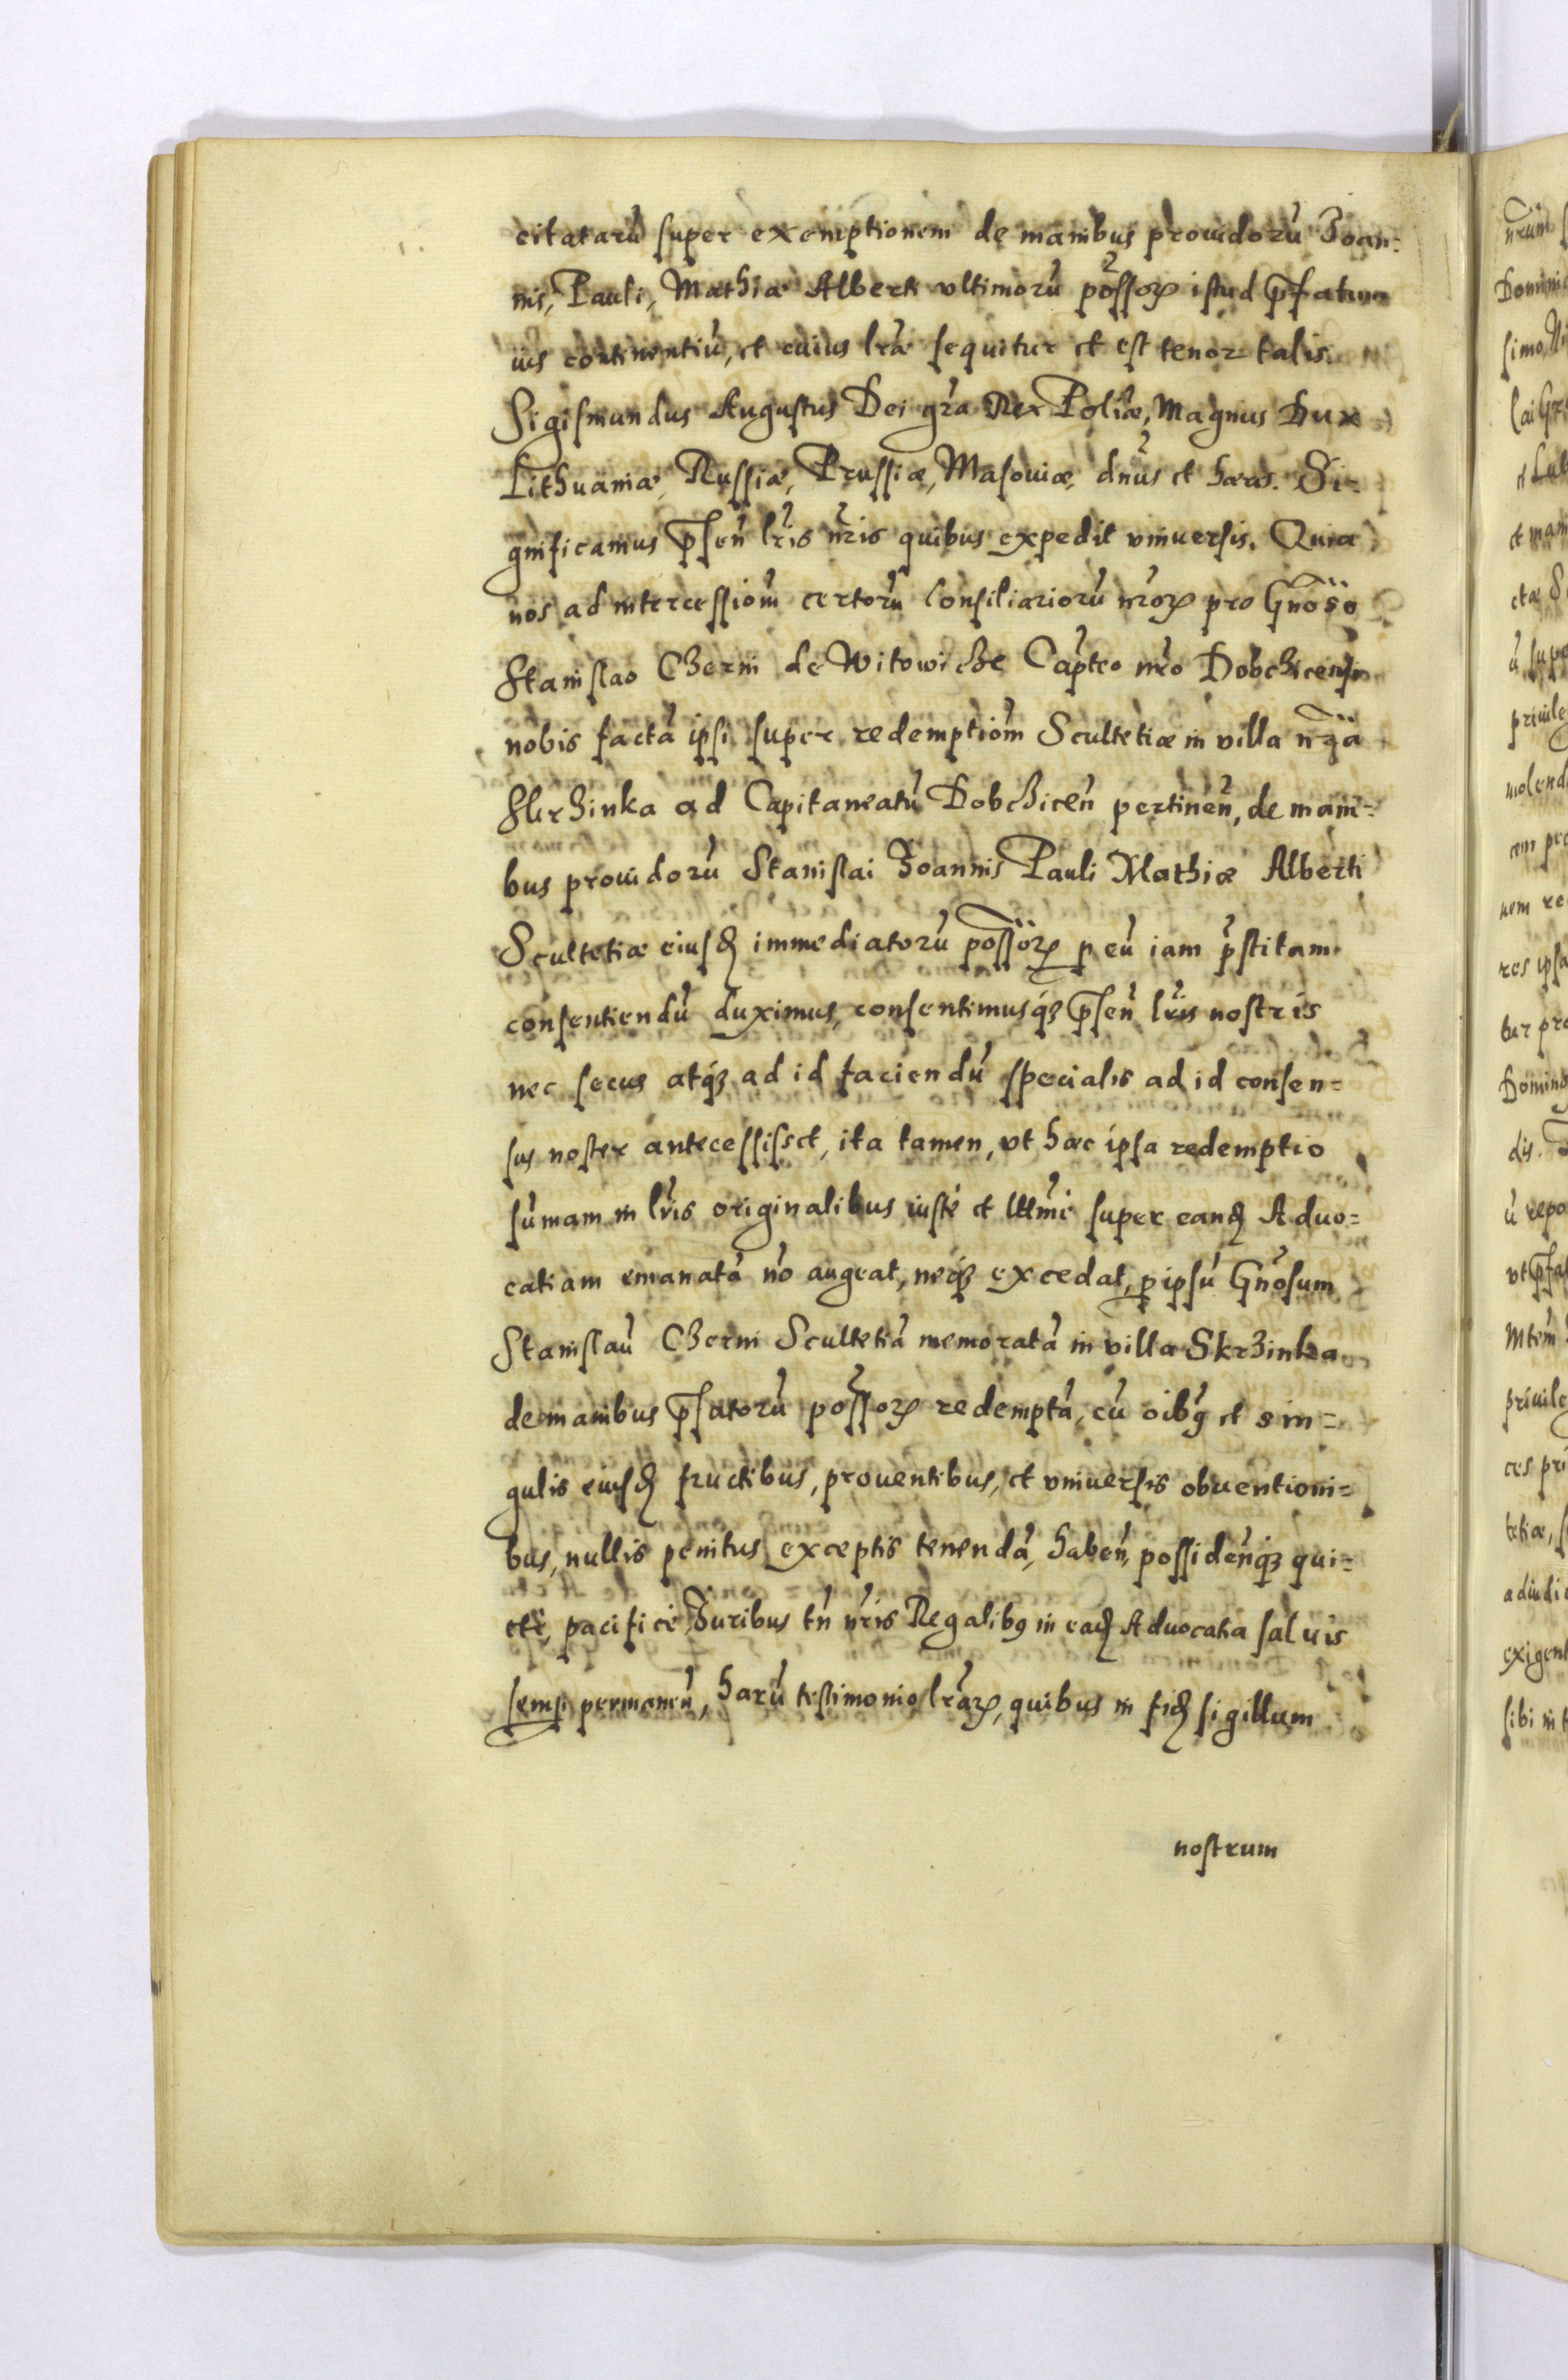 citatarũ super exemptionem de manibus prouidorũ Joan=
nis, Pauli, Mathiæ Alberti vltimorũ põssoꝝ istud p̃fatum
ius continentiũ, et cuius lr̃æ sequitur et est tenor talis.
Sigismundus Augustus Dei gr̃a Rex Poliæ, Magnus Dux
Lithuaniæ, Russiæ, Prussiæ, Masouiæ, dnũs et hæres. Si=
gnificamus p̃señ lr̃is nr̃is quibus expedit vniuersis. Quia
nos ad intercessiom̃ certorũ Consiliariorũ nr̃oꝝ pro Gnõso
Stanislao Czerni de Witowicze Capt̃eo nr̃o Dobczicensi
nobis factã ipsi super redemptiom̃ Scultetiæ in villa nr̃a
Skrzinka ad Capitaneatũ Dobcziceñ pertineñ, de mani=
bus prouidorũ Stanislai Joannis Pauli Mathiæ Alberti
Scultetiæ eiusđ immediatorũ põssoꝝ ꝑ eũ iam p̃stitam
consentiendũ duximus, consentimusqꝫ p̃señ lr̃is nostris
nec secus atqꝫ ad id faciendũ specialis ad id consen=
sus noster antecessisset, ita tamen, vt hæc ipsa redemptio
sum̃am in lr̃is originalibus iustè et lttm̃è super eanđ Aduo=
catiam emanatã nõ augeat, neqꝫ excedat, ꝑ ipsũ Gnõsum
Stanislaũ Czerni Scultetiã memoratã in villa Skrzinka
de manibus p̃fatorũ põssoꝝ redemptã, cũ oĩbꝰ et sin=
gulis eiusđ fructibus, prouentibus, et vniuersis obuentioni=
bus, nullis penitus exceptis tenendã, habeñ, possideñqꝫ qui=
etè, pacificè, Juribus tñ nr̃is Regalibꝰ in eađ Aduocatia saluis
semꝑ permaneñ, harũ testimonio lr̃aꝝ, quibus in fiđ sigillum
nostrum